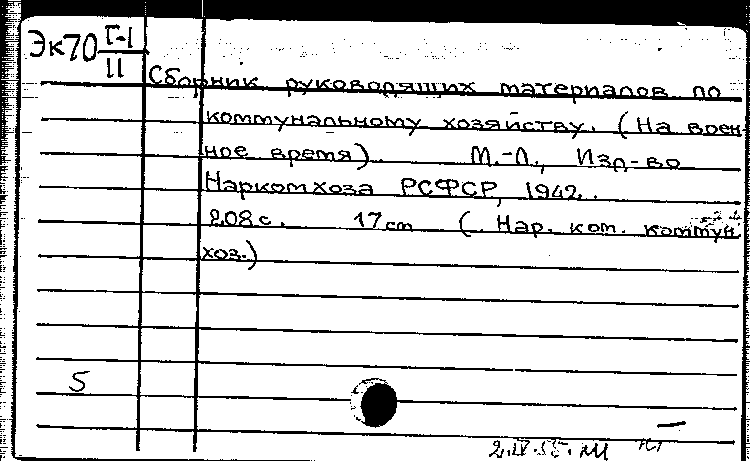 Эк70 Г-I
II
Сборник руководящих материалов по
коммунальному хозяйству. (На воен-
ное время). М.-Л., Изд-во
Наркомхоза РСФСР, 1942.
208 с. 17 cm (Нар. ком. коммун.
хоз.)
5
2.IV.55.